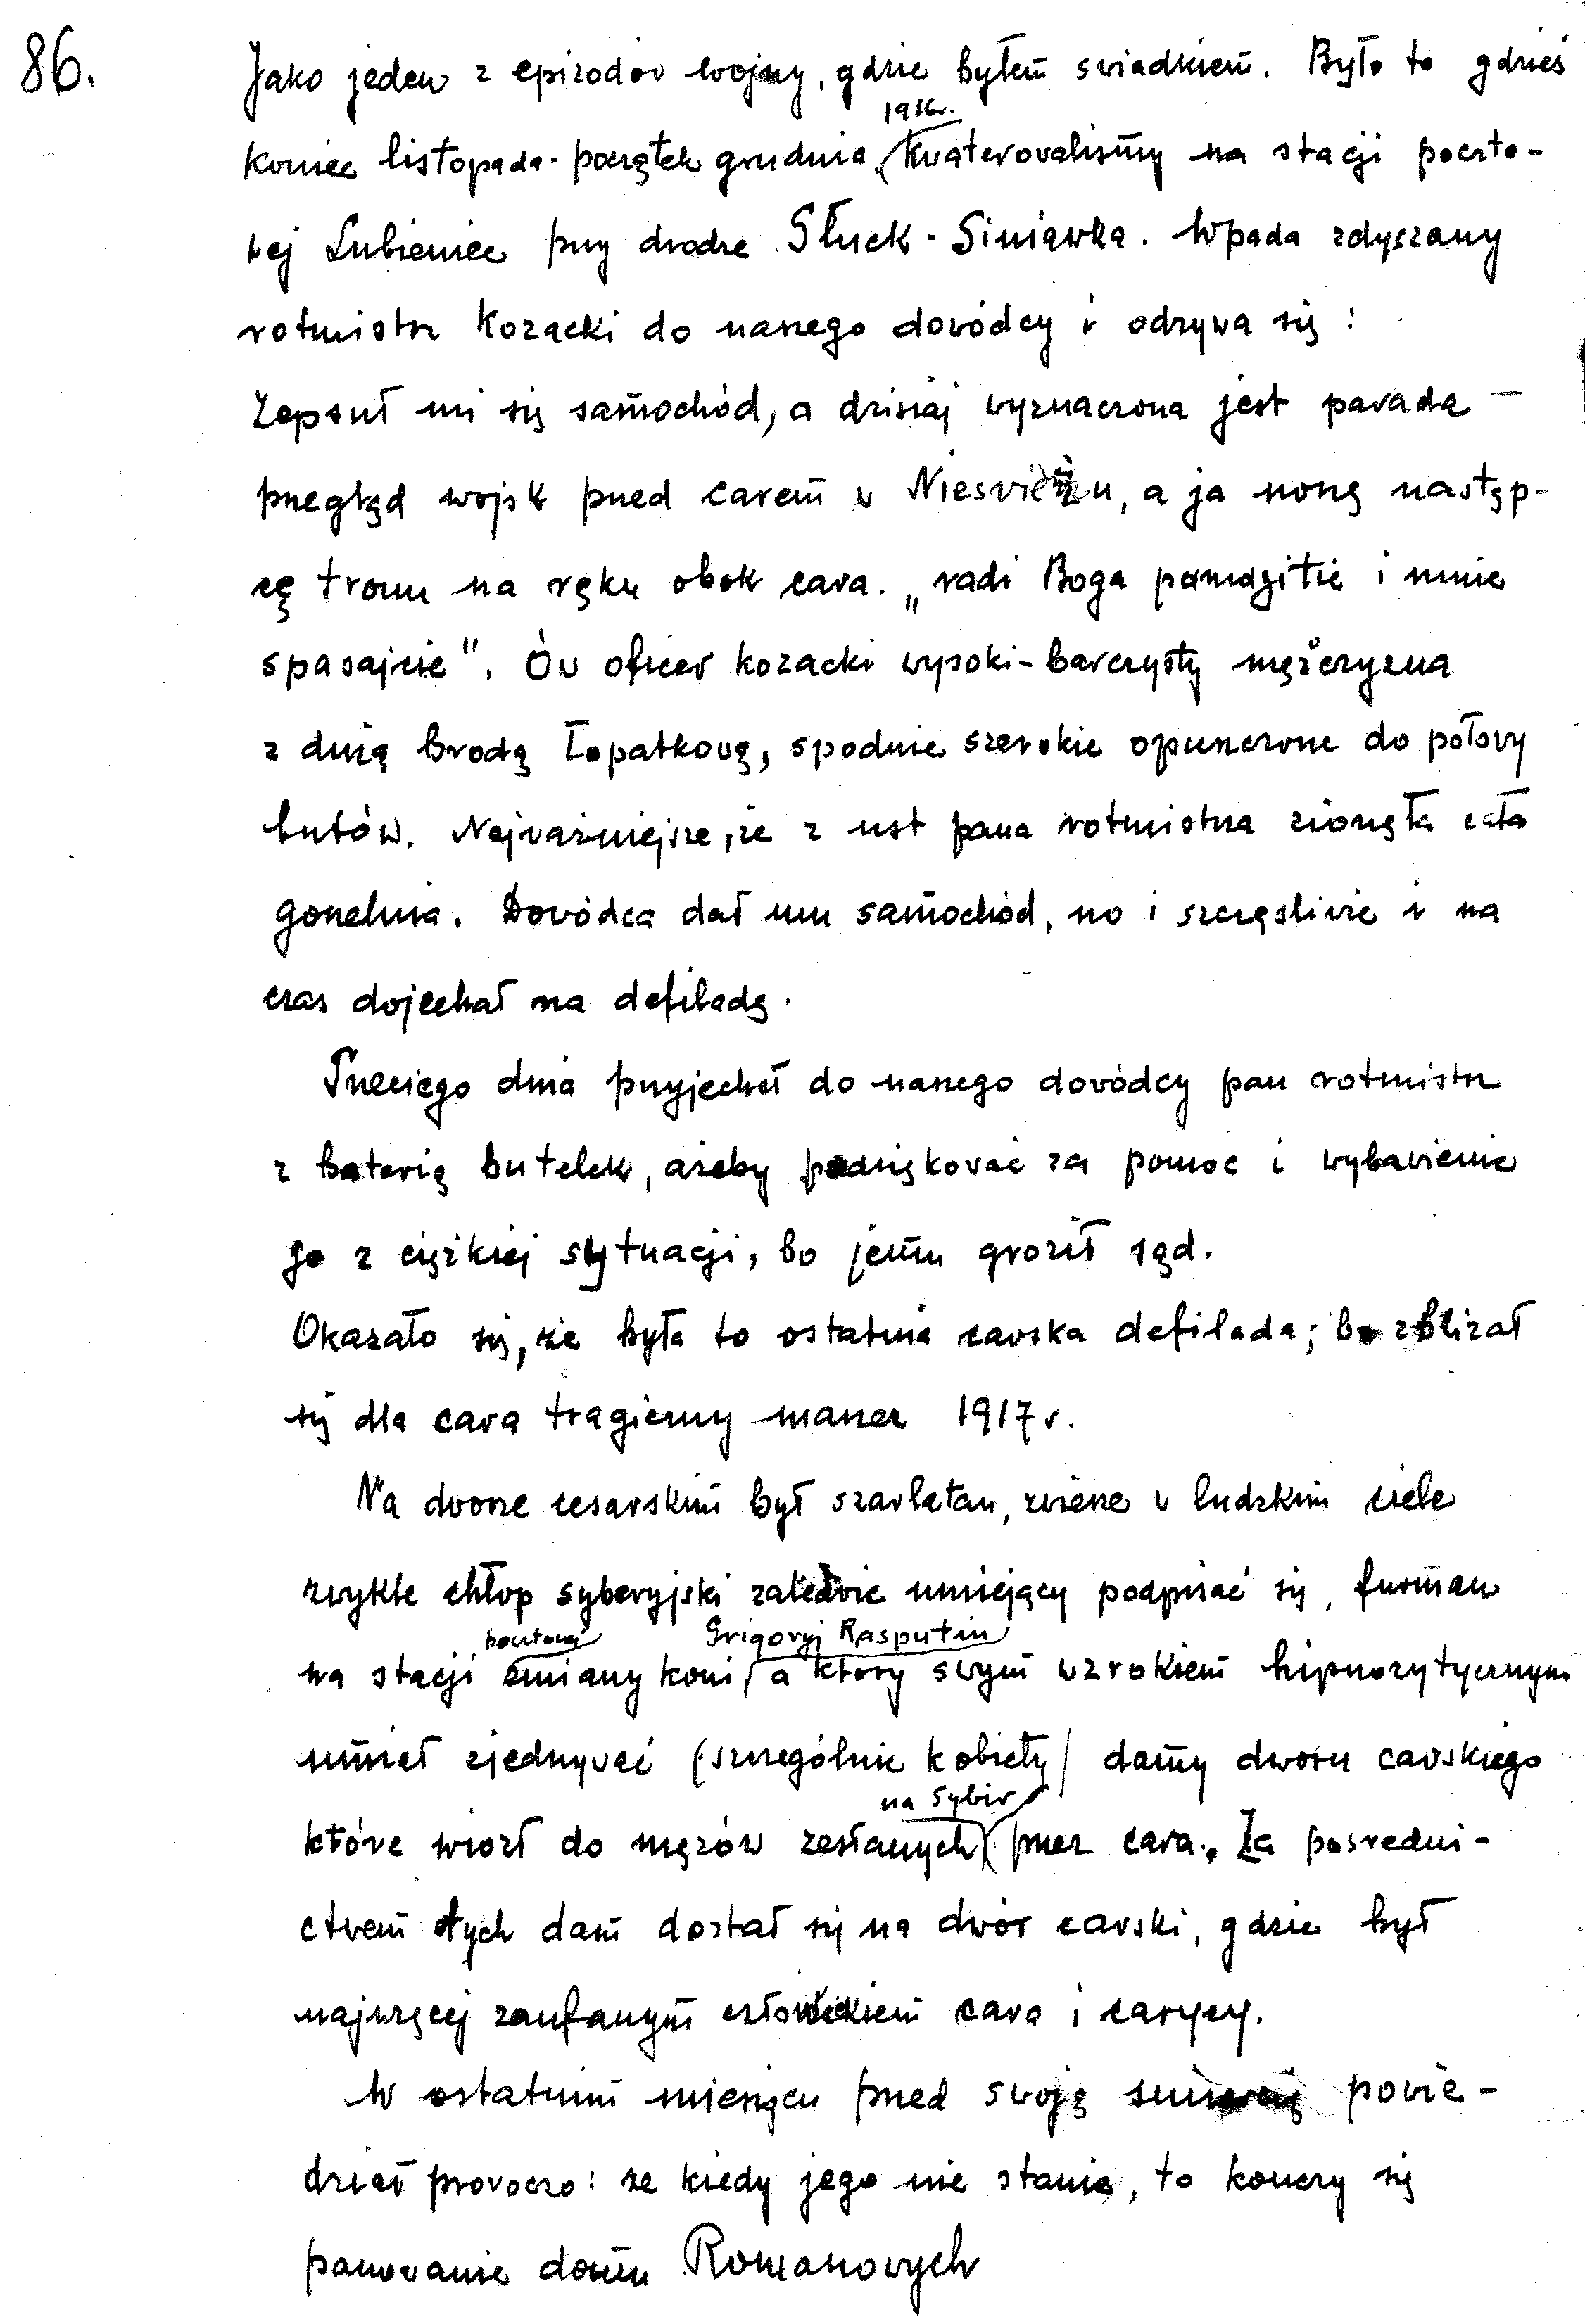 86.
Jako jeden z epizodów wojny, gdzie byłem świadkiem. Było to gdzieś
1916r.
koniec listopada - początek grudnia, kwaterowaliśmy na stacji poczto-
wej Lubieniec przy drodze Słuck - Siniawka. Wpada zdyszany
rotmistrz kozacki do naszego dowódcy i odzywa się :
Zepsuł mi się samochód, a dzisiaj wyznaczona jest parada -
przegląd wojsk przed carem w Nieświeżu, a ja noszę następ-
cę tronu na ręku obok cara. „radi Boga pomożitie i mnie
spasajcie". Ów oficer kozacki wysoki - barczysty mężczyzna
z dużą brodą łopatkową, spodnie szerokie opuszczone do połowy
butów. Najważniejsze, że z ust pana rotmistrza zionęła cała
gorzelnia. Dowódca dał mu samochód, no i szczęśliwie i na
czas dojechał na defiladę.
Trzeciego dnia przyjechał do naszego dowódcy pan rotmistrz
z baterią butelek, ażeby podziękować za pomoc i wybawienie
go z ciężkiej sytuacji, bo jemu groził sąd.
Okazało się, że była to ostatnia carska defilada; bo zbliżał
się dla cara tragiczny marzec 1917 r.
Na dworze cesarskim był szarlatan, zwierze w ludzkim ciele
zwykle chłop syberyjski zaledwie umiejący podpisać się, furman
pocztowej Grigoryj Rasputin
na stacji zmiany koni, a który swym wzrokiem hipnozytycznym
umiał zjednywać (szczególnie kobiety) damy dworu carskiego
na Sybir
które wiozł do mężów zesłanych przez cara. Za pośredni-
ctwem tych dam dostał się na dwór carski, gdzie był
najwięcej zaufanym człowiekiem cara i carycy.
W ostatnim miesiącu przed swoją śmiercią powie-
dział proroczo: że kiedy jego nie stanie, to kończy się
panowanie domu Romanowych